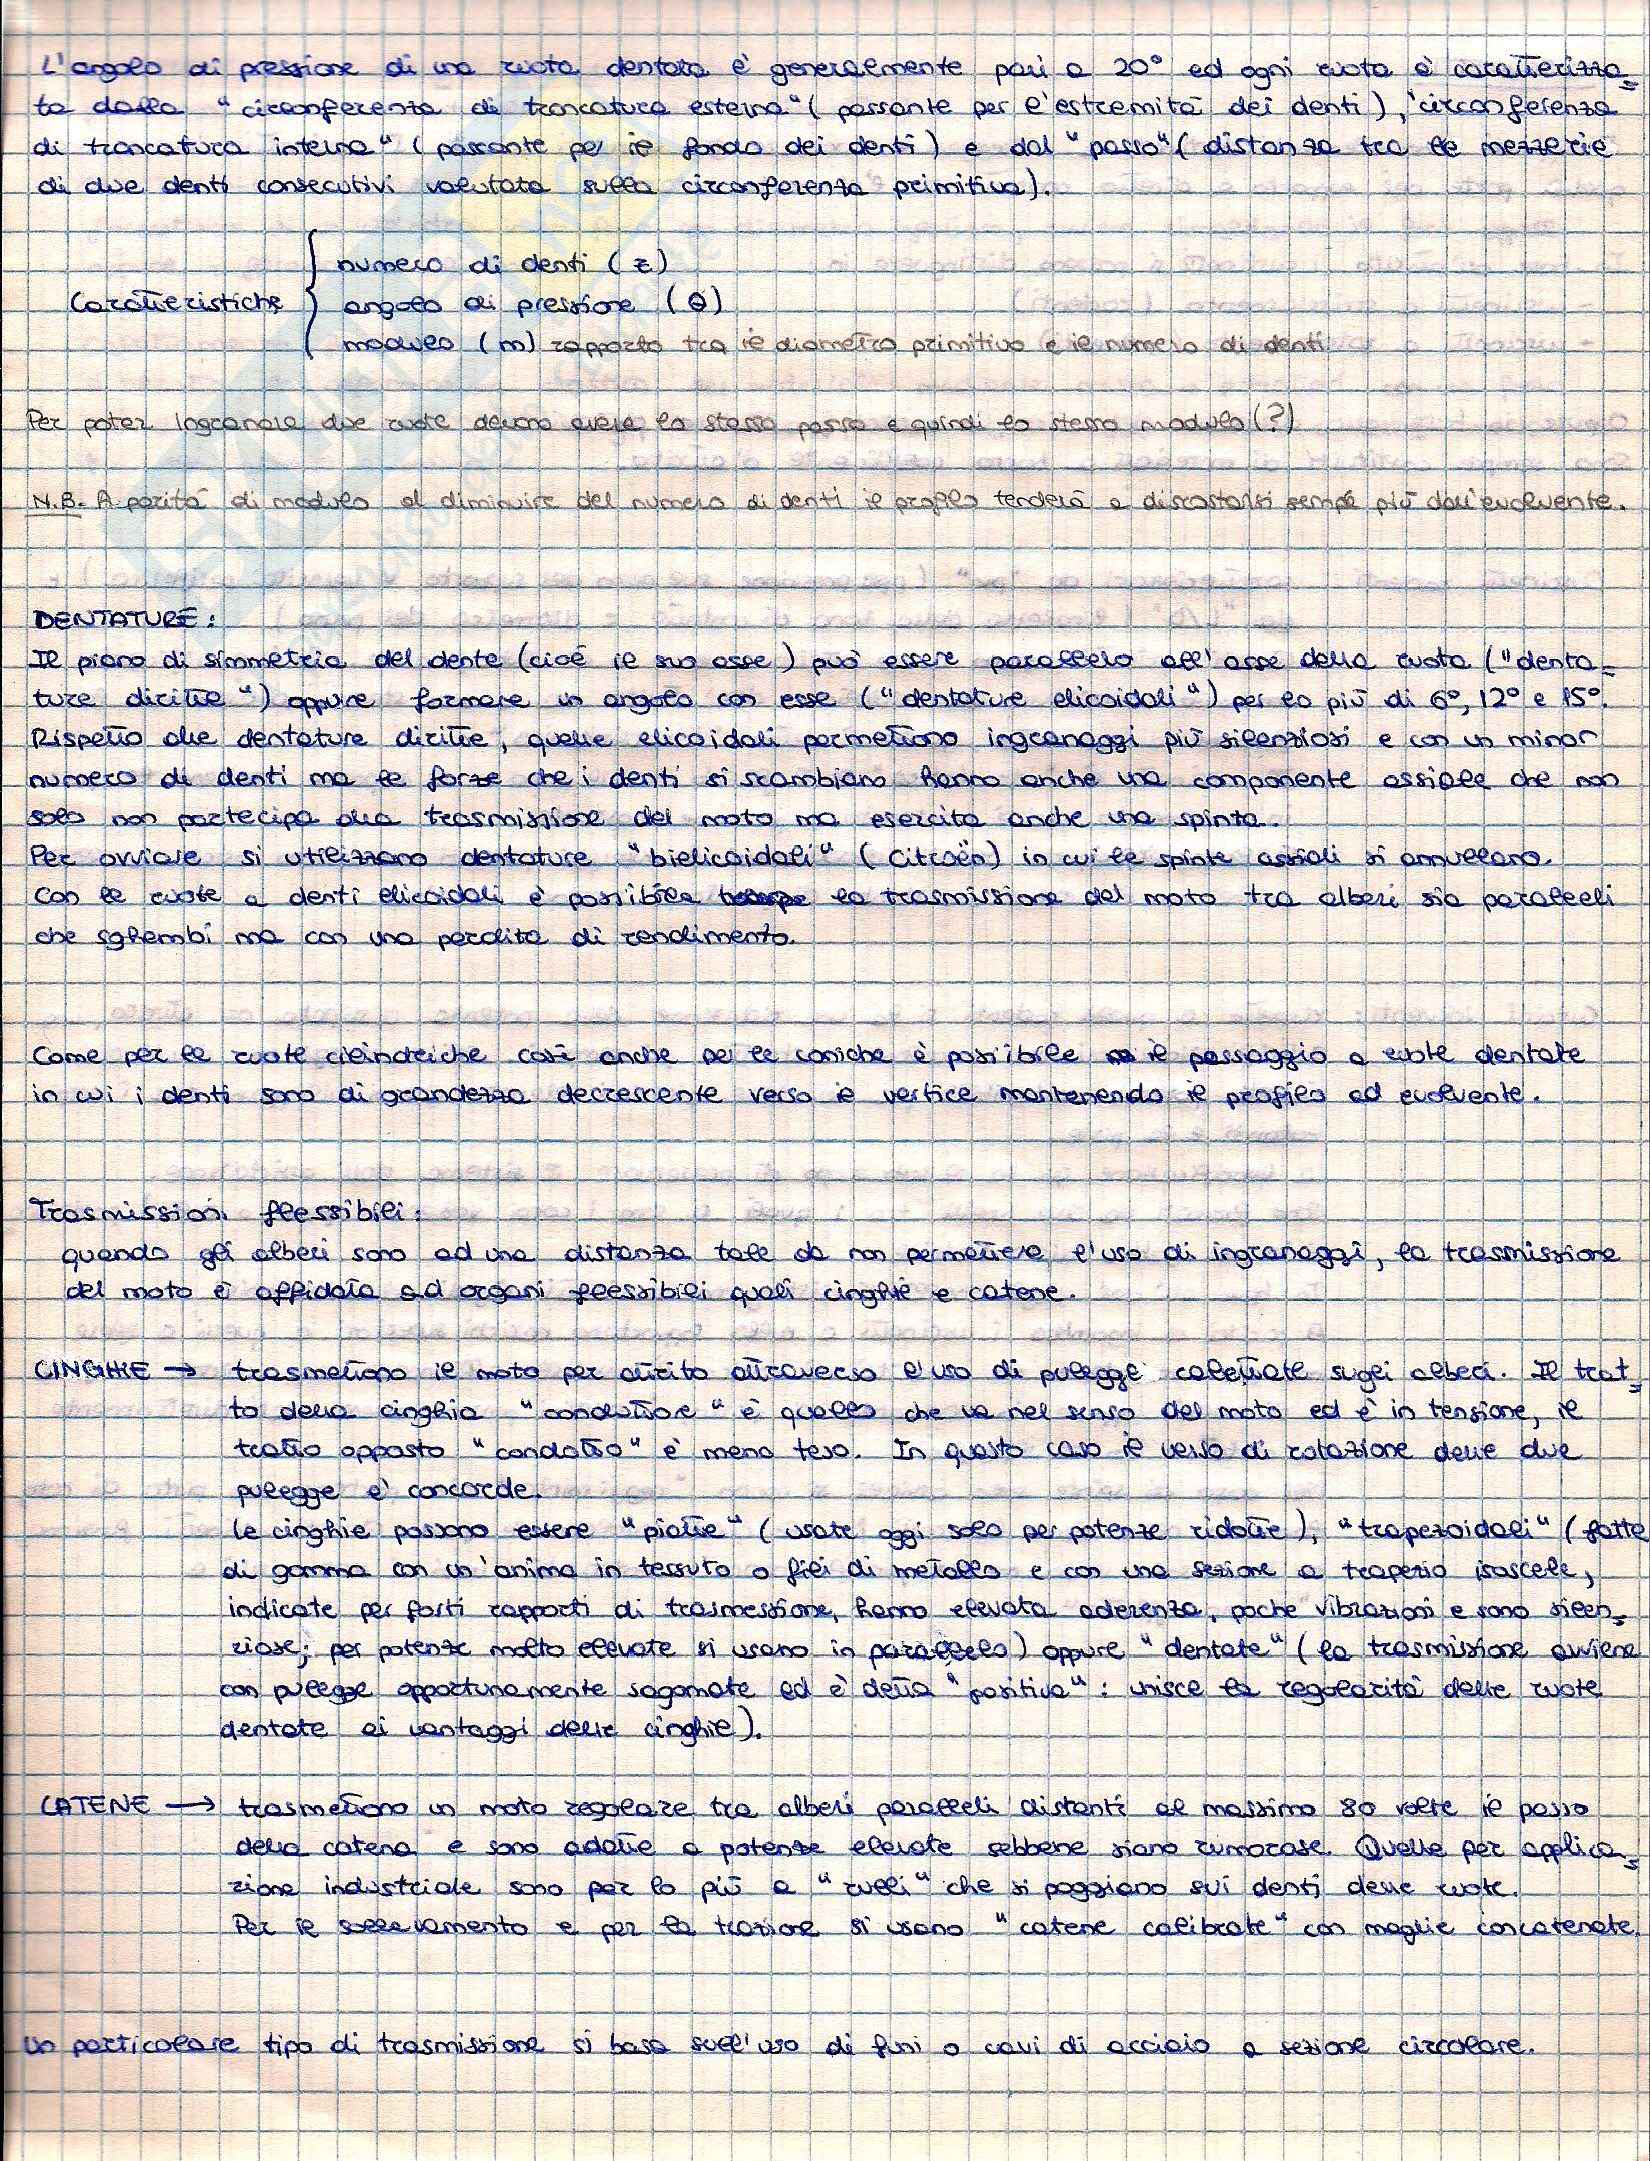 L'angolo di pressione di una ruota dentata è generalmente pari a 20° ed ogni ruota è caratterizza=
ta dalla "circonferenza di troncatura esterna" (passante per l'estremità dei denti), "circonferenza
di troncatura interna" (passante per il fondo dei denti) e dal "passo" (distanza tra le mezzerie
di due denti consecutivi valutata sulla circonferenza primitiva).
numero di denti (z)
Caratteristiche angolo di pressione (θ)
modulo (m) rapporto tra il diametro primitivo e il numero di denti
Per poter ingranare due ruote devono avere lo stesso passo e quindi lo stesso modulo (?)
N.B. A parità di modulo al diminuire del numero di denti il profilo tenderà a discostarsi sempre più dall'evolvente.
DENTATURE:
Il piano di simmetria del dente (cioé il suo asse) può essere parallelo all'asse della ruota ("denta=
ture diritte") oppure formare un angolo con esse ("dentature elicoidali") per lo più di 6°, 12° e 15°.
Rispetto alle dentature diritte, quelle elicoidali permettono ingranaggi più silenziosi e con un minor
numero di denti ma le forze che i denti si scambiano hanno anche una componente assiale che non
solo non partecipa alla trasmissione del moto ma esercita anche una spinta.
Per ovviare si utilizzano dentature "bielicoidali" (Citroën) in cui le spinte assiali si annullano.
Con le ruote a denti elicoidali è possibile la trasmissione del moto tra alberi sia paralleli
che sghembi ma con una perdita di rendimento.
Come per le ruote cilindriche così anche per le coniche è possibile il passaggio a ruote dentate
in cui i denti sono di grandezza decrescente verso il vertice mantenendo il profilo ad evolvente.
Trasmissioni flessibili:
quando gli alberi sono ad una distanza tale da non permettere l'uso di ingranaggi, la trasmissione
del moto è affidata ad organi flessibili quali cinghie e catene.
CINGHIE → trasmettono il moto per attrito attraverso l'uso di pulegge calettate sugli alberi. Il trat=
to della cinghia "conduttore" è quello che va nel senso del moto ed è in tensione, il
tratto opposto "condotto" è meno teso. In questo caso il verso di rotazione delle due
pulegge è concorde.
Le cinghie possono essere "piatte" (usate oggi solo per potenze ridotte), "trapezoidali" (fatte
di gomma con un'anima in tessuto o fili di metallo e con una sezione a trapezio isoscele,
indicate per forti rapporti di trasmessione, hanno elevata aderenza, poche vibrazioni e sono silen=
ziose; per potenze molto elevate si usano in parallelo) oppure "dentate" (la trasmissione avviene
con pulegge opportunamente sagomate ed è detta "positiva": unisce la regolarità delle ruote
dentate ai vantaggi delle cinghie).
CATENE → trasmettono un moto regolare tra alberi paralleli distanti al massimo 80 volte il passo
della catena e sono adatte a potenze elevate sebbene siano rumorose. Quelle per applica=
zione industriale sono per lo più a "rulli" che si poggiano sui denti delle ruote.
Per il sollevamento e per la trazione si usano "catene calibrate" con maglie concatenate.
Un particolare tipo di trasmissione si basa sull'uso di funi o cavi di acciaio a sezione circolare.